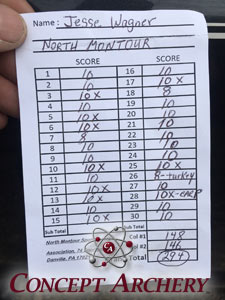 Name: Jesse Wagner
NORTH MONTOUR
SCORE SCORE
1 10 16 10
2 10 17 10 X
3 10 X 18 8
4 10 19 10
5 10 X 20 10
6 10 X 21 10
7 8 22 10
8 10 23 10
9 10 24 10
10 10 25 10 X
11 10 26 8-turkey
12 10 X 27 10
13 10 X 28 10X-
14 10 29 10
15 10 X 30 10
Sub Total Sub Total
North Montour Col #1 148
Association, #2 146
Danville, PA Total 294
CONCEPT ARCHERY